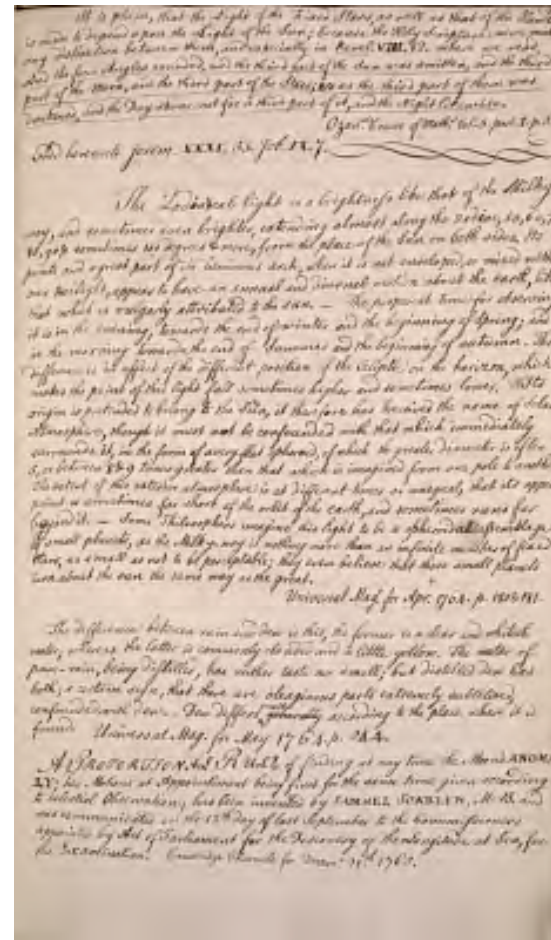 It is plain, that the Light of the Fixed Stars, as well as that of the
is made to depend upon the Light of the Sun; because the Holy Scriptures
any distinction between them, and especially in Revel. VIII. 12. where we read,
And the four Angles sounded, and the third part of the Sun was smitten, and the third
part of the Moon, and the third part of the Stars, so as the third part of them was
darkened, and the Day shone not for a third part of it, and the Night likewise.
Ozan. Course of Math. Vol. 5. part 1. p.
Jerem. XXXI. 35. Job. IX. 7.
The Zodiacal light is a brightness like that of the Milky
way, and sometimes even brighter, extending almost along the zodiac, 50, 60,
80, 90 & sometimes 100 degrees & more, from the place of the Sun on both sides. Its
point and a great part of its luminous, when it is not enveloped, or mixed with
our twilight, appear to have an annual and diurnal motion about the earth, like
that which is vulgarly attributed to the sun. — The proper time for observing
it is in the evening, towards the end of winter and the beginning of Spring; and
in the morning towards the end of Summer and the beginning of autumn. This
difference is an effect of the different position of the Ecliptic on the horizon, which
makes the point of this light fall sometimes higher and sometimes lower.
origin is pretended to belong to the Sun, it therefore has received the name of Solar
Atmosphere, though it must not be confounded with that which immediately
surrounds it, in the form of a very flat spheroid, of which the greater diameter is often
5, or between 8 & 9 times greater than that which is imagined from one pole to another
The extent of this exterior atmosphere is at different times so unequal, that its upper
point is sometimes far short of the orbit of the earth, and sometimes runs far
beyond it. — Some Philosophers imagine this light to be a
of small planets, as the Milky way is nothing more than an infinite number of fixed
stars, so small as not to be perceptible; they even believe that these small planets
turn about the sun the same way as the great.
Universal Mag. for Apr. 1764. p.
The difference between rain and dew is this, the former is a clear and whitish
water, whereas the latter is commonly cloudier and a little yellow. The water of
pure rain, being distilled, has neither taste nor smell; but distilled dew has
both, a certain sign, that there are oleaginous parts extremely subtilized,
confounded with dew. Dew differs generally according to the place where it is
found. Universal Mag. for May 1764. p. 244.
A PROPORTIONAL RULE of finding at any time the Moons ANOMA
LY; her Motions at being first for the same time given according
to celestial Observations, has been invented by SAMUEL, M. B. and
was communicated on the 12th day of last September to the Commissioners
appointed by Act of Parliament for the Discovery of the Longitude at Sea, for
the Examination. Cambridge Chronicle for 1765.